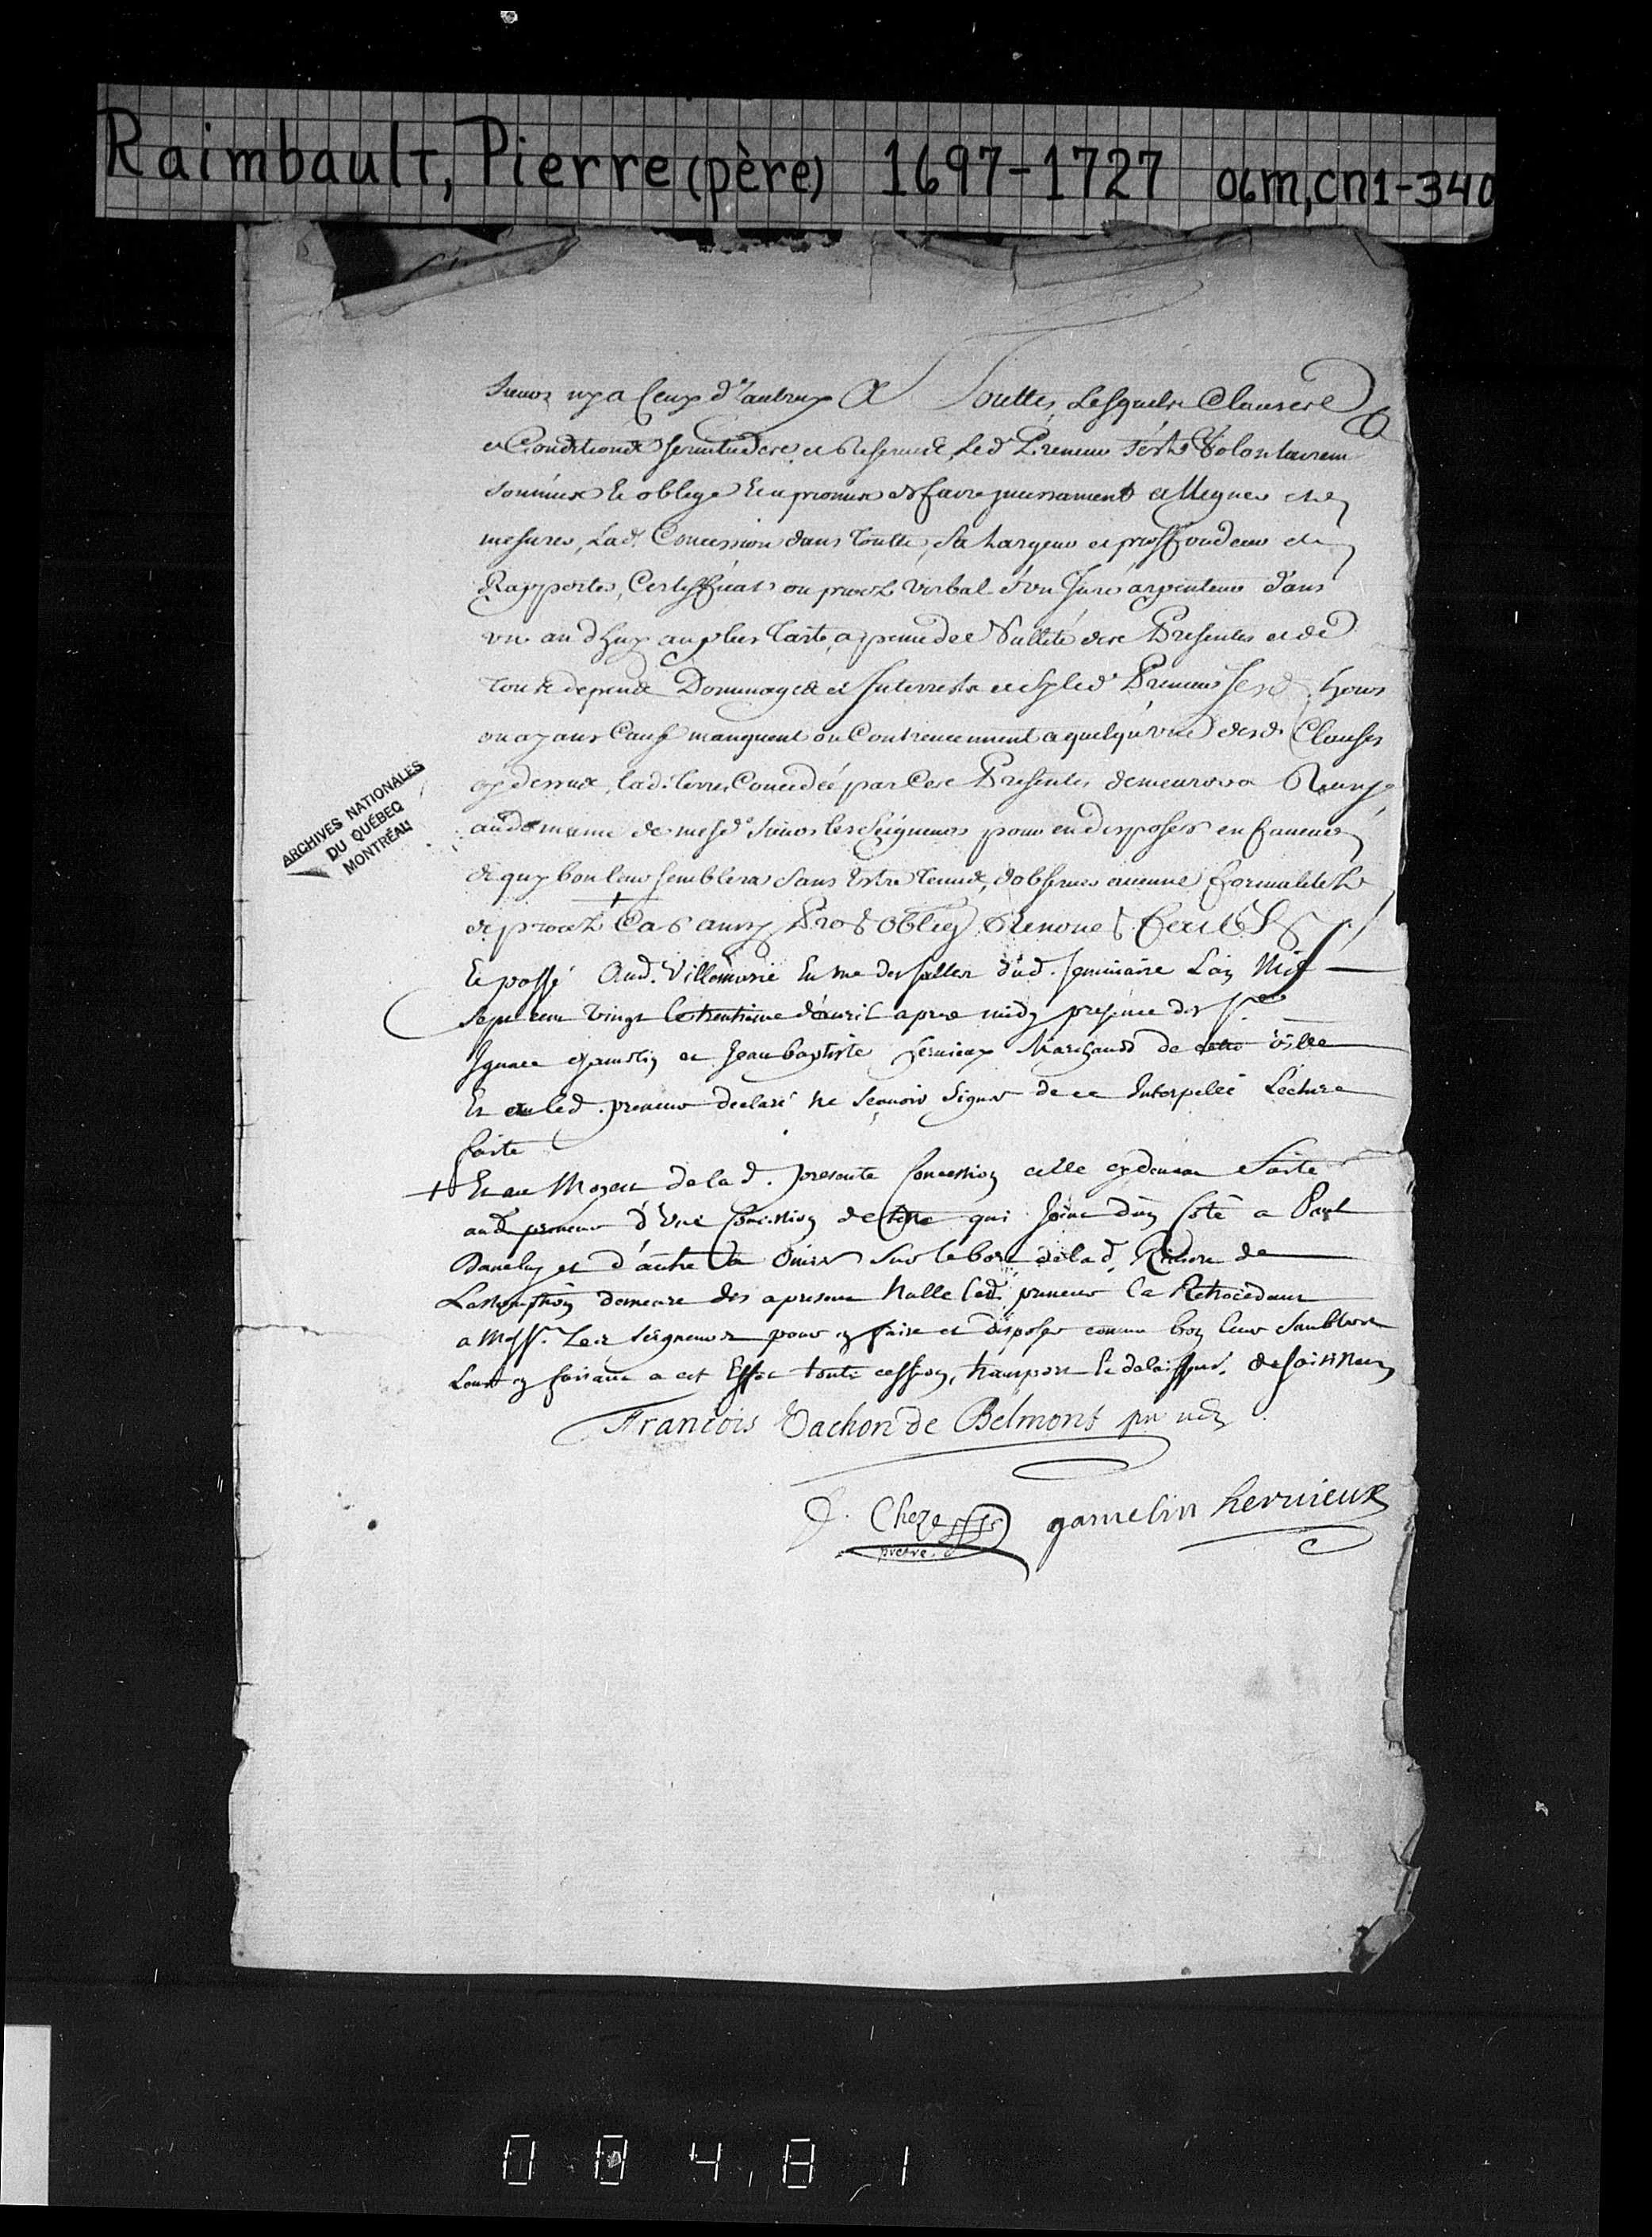 Raimbault, Pierre (père) 1697-1727 06m,cn1-340
Sieurs ny a Ceux d'autruy A Touttes Lesquels Clauses
et Conditions servitudes et Reserves, Led. Preneur s'est Volontairem
soumis et obligé et a promis de faire incessament alligner et
mesurer, Lad. Concession dans toutte sa Largeur et proffondeur et
Rapporter, Certifficat ou procez verbal d'un Juré arpenteur dans
un an d'huy au plus tart, a peine de Nullité des Presentes et de
tous depens Dommages et Interrests et sy led. Preneur ses d. hoirs
ou ayans Cause manquent ou Contreviennent a quelqu'une desd. Clauses
cy dessus, lad. terre Concedée par Ces Presentes demeurera Reunye
au domaine de mesd. Sieurs les Seigneurs pour en disposer en faveur
de quy bon leur semblera sans Estre tenus, d'observer aucune formalitez
de procez + Car ainsy Promt Oblig Renonct
Et passé Aud. Villemarie En une des salles dud. seminaire L'an Mil
Sept cens Vingt le trentieme d'avril apres midy presence des Srs
Ignace Gamelin et Jean baptiste Hervieux Marchands de cette Ville
Et a led. preneur declaré ne sçavoir signer de ce Interpellé Lecture
faite
+ Et au Moyen de la d. presente Concession celle cy devant faite
aud. preneur d'Une Concession de terre qui Joint d'un Coté a Paul
et d'autre a sur le bord de la d. Riviere de
Lassomption demeure des apresent Nulle led. preneur la Retrocedant
a Messrs. Les Seigneurs pour y faire et disposer comme bon leur semblera
Leur y faisant a cet Effet toute cession, transport et delaissemt. dessaisissan
François Vachon de Belmont
Cheze
prêtre
gamelin hervieux
ARCHIVES NATIONALES
DU QUÉBEC
MONTRÉAL
0 0 4 8 1